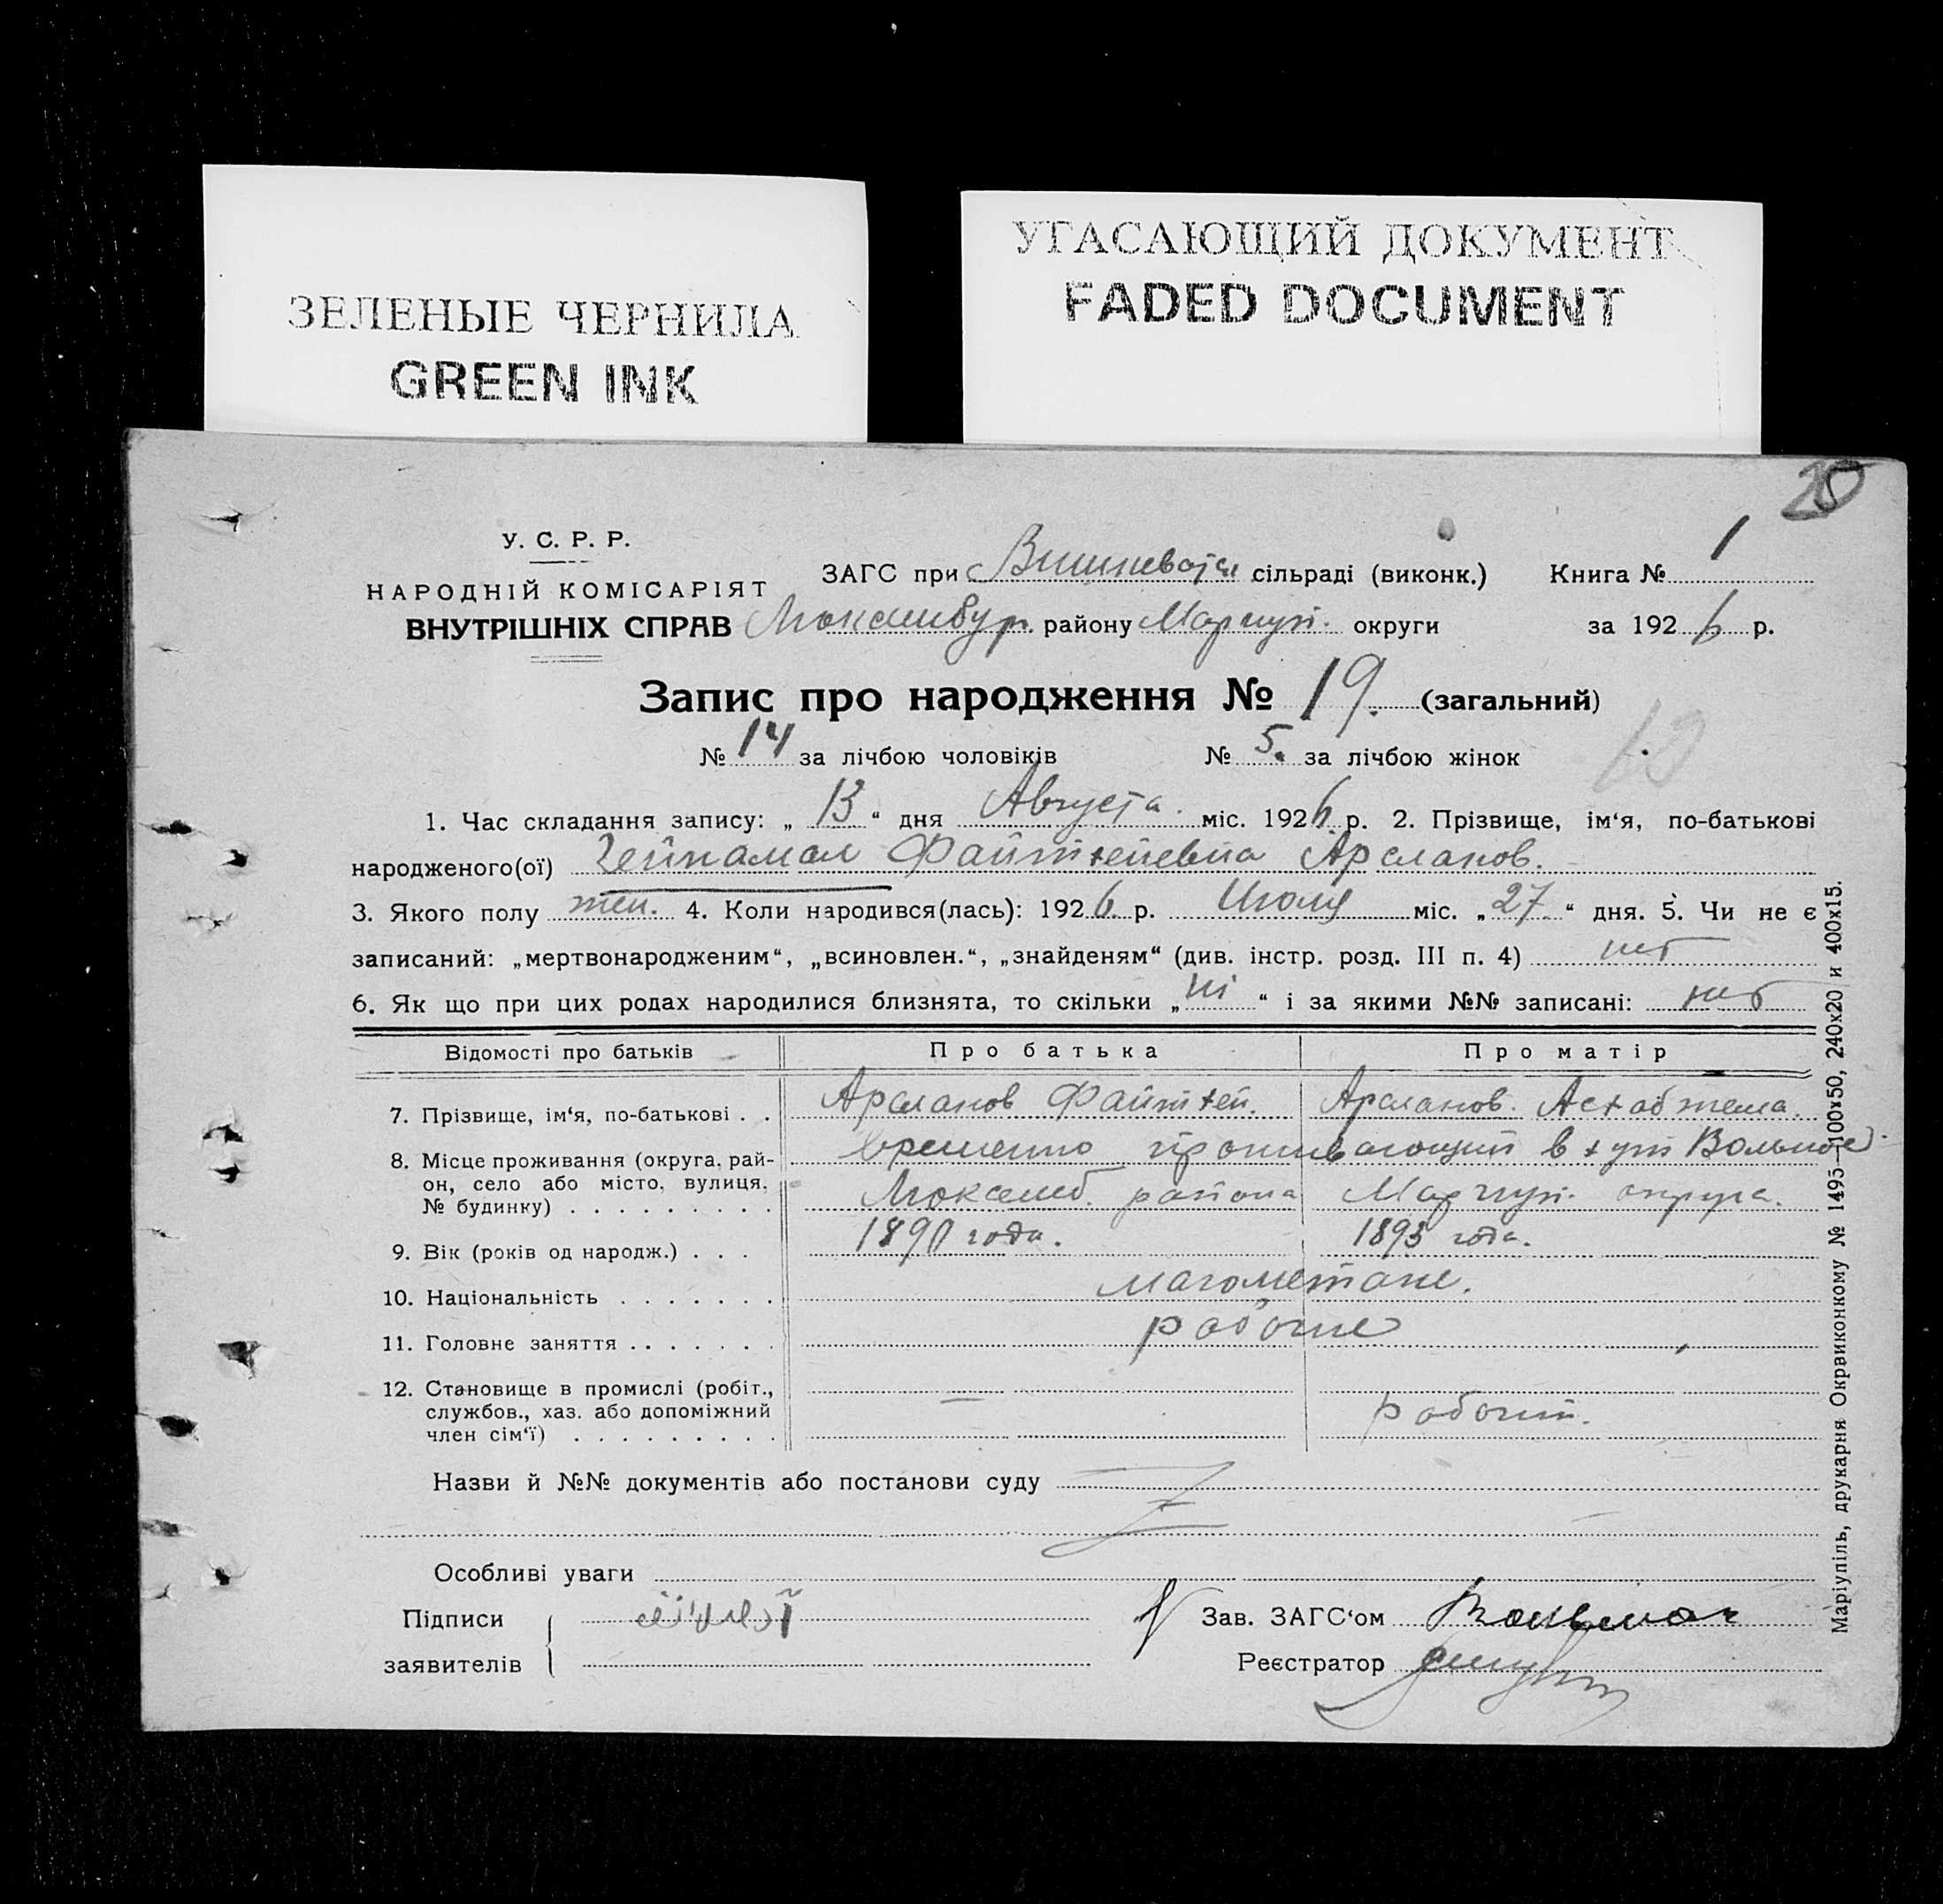 ЗЕЛЕНЫЕ ЧЕРНИЛА
GREEN INK
УГАСАЮЩИЙ ДОКУМЕНТ
FADED DOCUMENT
20
У. С. Р. Р.
НАРОДНІЙ КОМІСАРІЯТ
ВНУТРІШНІХ СПРАВ
ЗАГС при сільраді (виконк.) Книга № 1
району Маріуп. округи за 1926 р.
Запис про народження № 19. (загальний)
№ 14 за лічбою чоловіків № 5. за лічбою жінок
1. Час складання запису: „ 13 “ дня Августа міс. 1926 р. 2. Прізвище, ім‘я, по-батькові
народженого(ої) Арсланов.
3. Якого полу жен. 4. Коли народився(лась): 1926 р. Июля міс. „ 27 “ дня. 5. Чи не є
записаний: „мертвонародженим“, „всиновлен.“, „знайденям“ (див. інстр. розд. III п. 4) нет
6. Як що при цих родах народилися близнята, то скільки „ ні “ і за якими №№ записані: нет
Відомості про батьків Про батька Про матір
7. Прізвище, ім‘я, по-батькові . . Арсланов Арсланов.
8. Місце проживання (округа, рай-
он, село або місто, вулиця,
№ будинку) . . . . . . . . .
временно проживающий в хут Вольное
района округа.
9. Вік (років од народж.) . . . 1890 года. 1893 года.
10. Національність . . . . . . . магометане.
11. Головне заняття . . . . . . . рабочие
12. Становище в промислі (робіт.,
службов., хаз. або допоміжний
член сім‘ї) . . . . . . . . .
— работн.
Назви й №№ документів або постанови суду
Особливі уваги
Підписи
заявителів
Зав. ЗАГС‘ом
Реєстратор
Маріупіль, друкарня Окрвиконкому № 1495—100х50, 240х20 и 400х15.